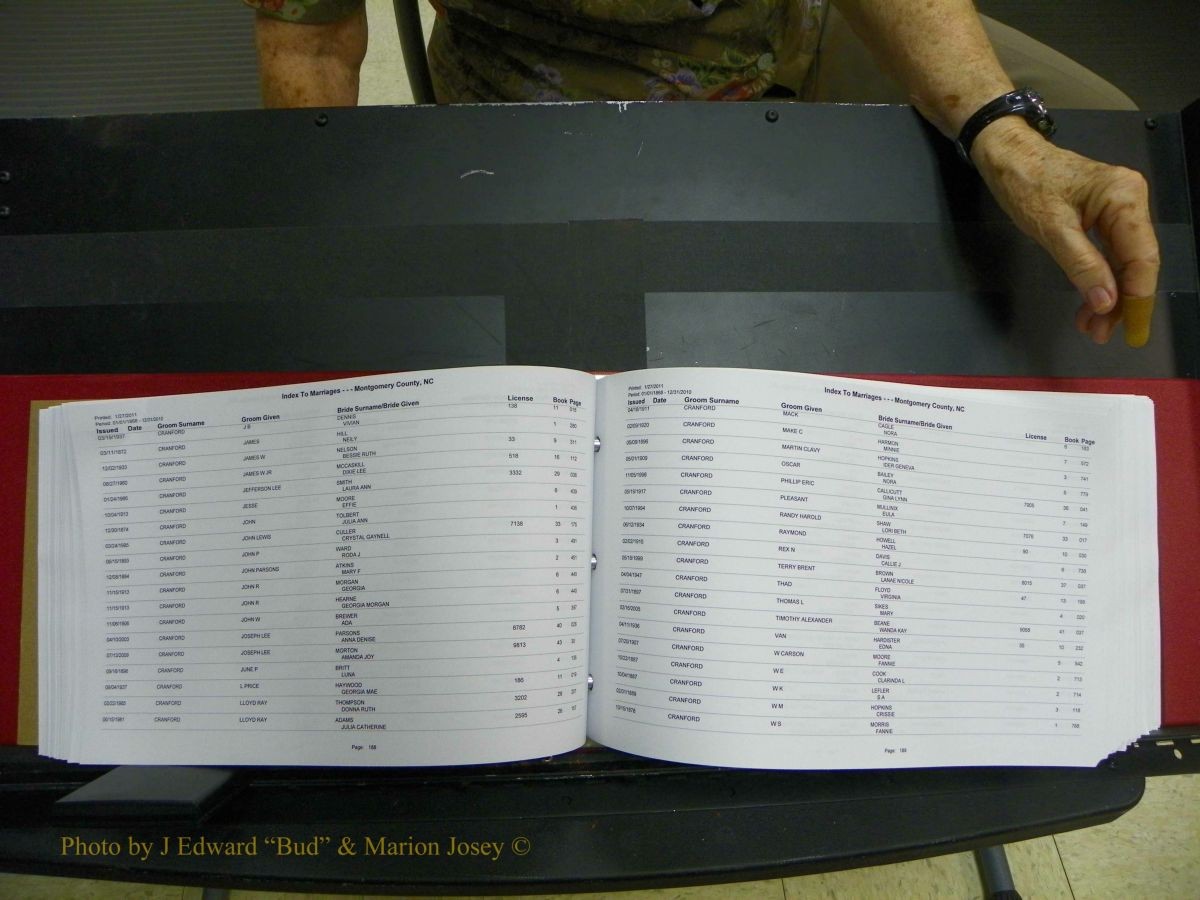 Index To Marriages - - - Montgomery County, NC
Printed: 1/27/2011
Period: 01/01/1868 - 12/31/2010
Issued Date Groom Surname Groom Given Bride Surname/Bride Given License Book Page
03/19/1937 CRANFORD J B DENNIS 138 11 018
VIVIAN
03/11/1872 CRANFORD JAMES HILL 1 280
NEILY
12/02/1933 CRANFORD JAMES W NELSON 33 9 311
BESSIE RUTH
08/27/1960 CRANFORD JAMES W JR MCCASKILL 518 16 112
DIXIE LEE
01/24/1986 CRANFORD JEFFERSON LEE SMITH 3332 29
LAURA ANN
10/04/1913 CRANFORD JESSE MOORE 6 409
EFFIE
12/30/1874 CRANFORD JOHN TOLBERT 1
JULIA ANN
03/24/1995 CRANFORD JOHN LEWIS CULLER 7138 33 175
CRYSTAL GAYNELL
CRANFORD JOHN P WARD 3
RODA J
12/08/1894 CRANFORD JOHN PARSONS ATKINS 2
MARY F
11/15/1913 CRANFORD JOHN R MORGAN 6
GEORGIA
11/15/1913 CRANFORD JOHN R HEARNE 6
GEORGIA MORGAN
11/06/1906 CRANFORD JOHN W BREWER 5
ADA
04/10/2003 CRANFORD JOSEPH LEE PARSONS 6782 40
ANNA DENISE
07/12/2008 CRANFORD JOSEPH LEE MORTON 9813 43
AMANDA JOY
CRANFORD JUNE P BRITT 4
LUNA
CRANFORD L PRICE HAYWOOD 186 11
GEORGIA MAE
CRANFORD LLOYD RAY THOMPSON 3202 28
DONNA RUTH
CRANFORD LLOYD RAY ADAMS 2595
JULIA CATHERINE
Page: 188
Printed: 1/27/2011
Index To Marriages - - - Montgomery County, NC
Period: 01/01/1868 - 12/31/2010
Issued Date Groom Surname Groom Given Bride Surname/Bride Given License Book Page
04/18/1911 CRANFORD MACK CAGLE 6 183
NORA
02/09/1920 CRANFORD MAKE C HARMON 7 572
MINNIE
CRANFORD MARTIN CLAVY HOPKINS 3 741
IDER GENEVA
05/01/1909 CRANFORD OSCAR BAILEY 779
NORA
11/05/1998 CRANFORD PHILLIP ERIC CALLICUTT 7005 36 041
GINA LYNN
CRANFORD PLEASANT MULLINIX 7 149
EULA
10/07/1994 CRANFORD RANDY HAROLD SHAW 7076 33 017
LORI BETH
CRANFORD RAYMOND HOWELL 90 10 030
HAZEL
CRANFORD REX N DAVIS 738
CALLIE J
CRANFORD TERRY BRENT BROWN 8015 37 037
LANAE NICOLE
04/04/1947 CRANFORD THAD FLOYD 47 13
VIRGINIA
07/31/1897 CRANFORD THOMAS L SIKES 4 020
MARY
CRANFORD TIMOTHY ALEXANDER BEANE 41 027
WANDA KAY
04/11/1936 CRANFORD VAN HARDISTER 10 232
EDNA
07/20/1907 CRANFORD W CARSON MOORE 5 542
FANNIE
CRANFORD W E COOK 2 713
CLARINDA L
10/04/1887 CRANFORD W K LEFLER 2 714
S A
CRANFORD W M HOPKINS 3 118
CRISSIE
CRANFORD W S MORRIS 1 768
FANNIE
Page: 189
Photo by J Edward “Bud” & Marion Josey ©